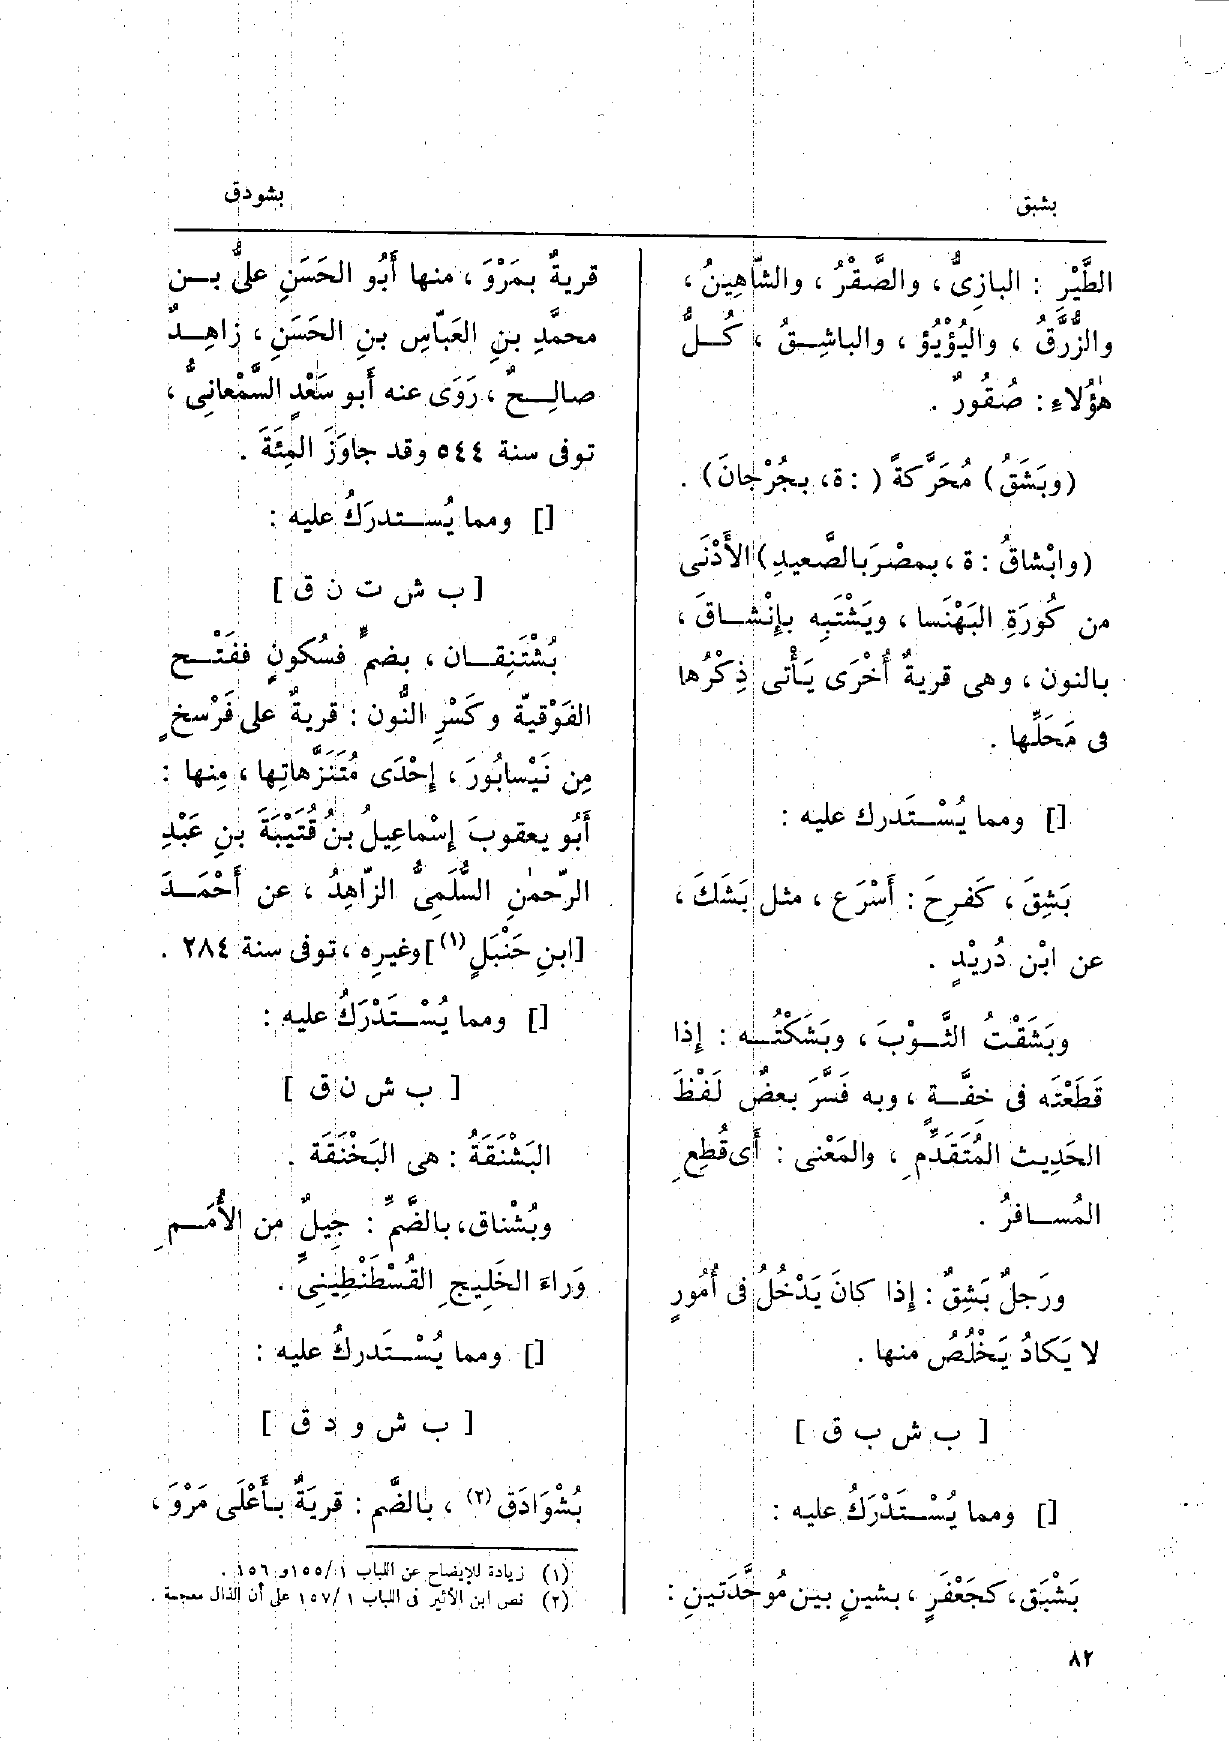 بشبق
بشودق
الطَّيْرِ : البازِىُّ ، والصَّقْرُ ، والشَّاهِينُ ،
والزُّرَّقُ ، واليُؤْيُؤ ، والباشِــقُ ، كُــلُّ
هٰؤُلاءِ : صُقُورٌ .
(وبَشَقُ) مُحَرَّكةً ( : ة ، بجُرْجانَ) .
(وابْشاقُ : ة ، بمصْرَ بالصَّعيدِ) الأَدْنَى
من كُورَةِ البَهْنَسا ، ويَشْتَبِه بإِنْشــاقَ ،
بالنون ، وهى قريةٌ أُخْرَى يَأْتى ذِكْرُها
فى مَحَلِّها .
[] ومما يُسْــتَدرك عليه :
بَشِقَ ، كَفرِحَ : أَسْرَع ، مثل بَشَكَ ،
عن ابْن دُريْدٍ .
وبَشَقْتُ الثَّــوْبَ ، وبَشَكْتُــه : إِذا
قَطَعْتَه فى خفَّــةٍ ، وبه فَسَّرَ بعضٌ لَفْظَ
الحَدِيث المُتَقَدِّمِ ، والمَعْنى : أَى قُطِعِ
المُســافرُ .
ورَجلٌ بَشِقٌ : إِذا كانَ يَدْخُلُ فى أُمُورٍ
لا يَكادُ يَخْلُصُ منها .
[ ب ش ب ق ]
[] ومما يُسْــتَدْرَكُ عليه :
بَشْبَق ، كجَعْفَرٍ ، بشينٍ بين مُوحَّدَتينِ :
قريةٌ بمَرْوَ ، منها أَبُو الحَسَنِ علىُّ بــن
محمَّدِ بنِ العَبّاسِ بنِ الحَسَنِ ، زاهِــدٌ
صالِــحٌ ، رَوَى عنه أَبو سَعْدٍ السَّمْعانِىُّ ،
توفى سنة ٥٤٤ وقد جاوَزَ المِئَةَ .
[] ومما يُســتدرَكُ عليه :
[ ب ش ت ن ق ]
بُشْتَنِقــان ، بضمٍّ فسُكونٍ ففَتْــحِ
الفَوْقيّة وكَسْرِ النُّون : قريةٌ على فَرْسخٍ
مِن نَيْسابُورَ ، إِحْدَى مُتَنَزَّهاتِها ، مِنها :
أَبُو يعقوبَ إِسْماعِيلُ بنُ قُتَيْبَةَ بنِ عَبْدِ
الرّحمٰنِ السُّلَمِىُّ الزّاهِدُ ، عن أَحْمَــدَ
[ابنِ حَنْبَلٍ (١)] وغيرِه ، توفى سنة ٢٨٤ .
[] ومما يُسْــتَدْرَكُ عليه :
[ ب ش ن ق ]
البَشْنَقَةُ : هى البَخْنَقَة .
وبُشْناق ، بالضَّمِّ : جِيلٌ من الأُمَــمِ
وَراءَ الخَلِيجِ القُسْطَنْطِينِىِّ .
[] ومما يُسْــتَدركُ عليه :
[ ب ش و د ق ]
بُشْوَادَق (٢) ، بالضَّم : قريَةٌ بأَعْلَى مَرْوَ ،
(١) زيادة للإيضاح عن اللباب ١/١٥٥ و ١٥٦ .
(٢) نص ابن الأثير فى اللباب ١/١٥٧ على أن الذال معجمة .
٨٢